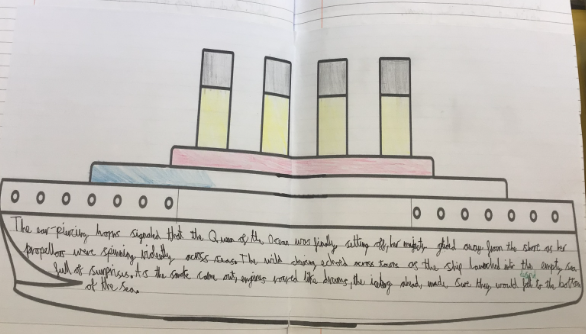 The ear-piercing horns signaled that the Queen of the Ocean was finally setting off, her majesty glided away from the shore as her
propellors were spinning across seas. The wild echo'd across as the ship launched into the empty sea
full of surprises. As the smoke came out, engines roared like, the iceberg ahead, made sure they would fall to the bottom
of the sea.